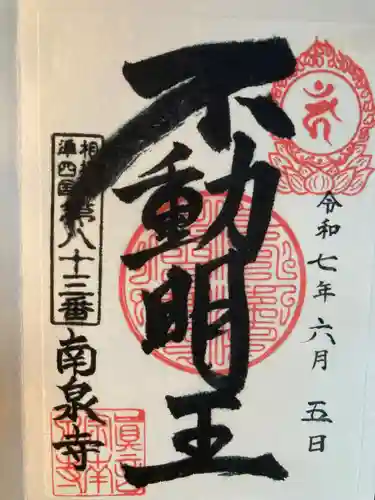 令和七年六月五日
不動明王
相模
準四国第八十三番
南泉寺